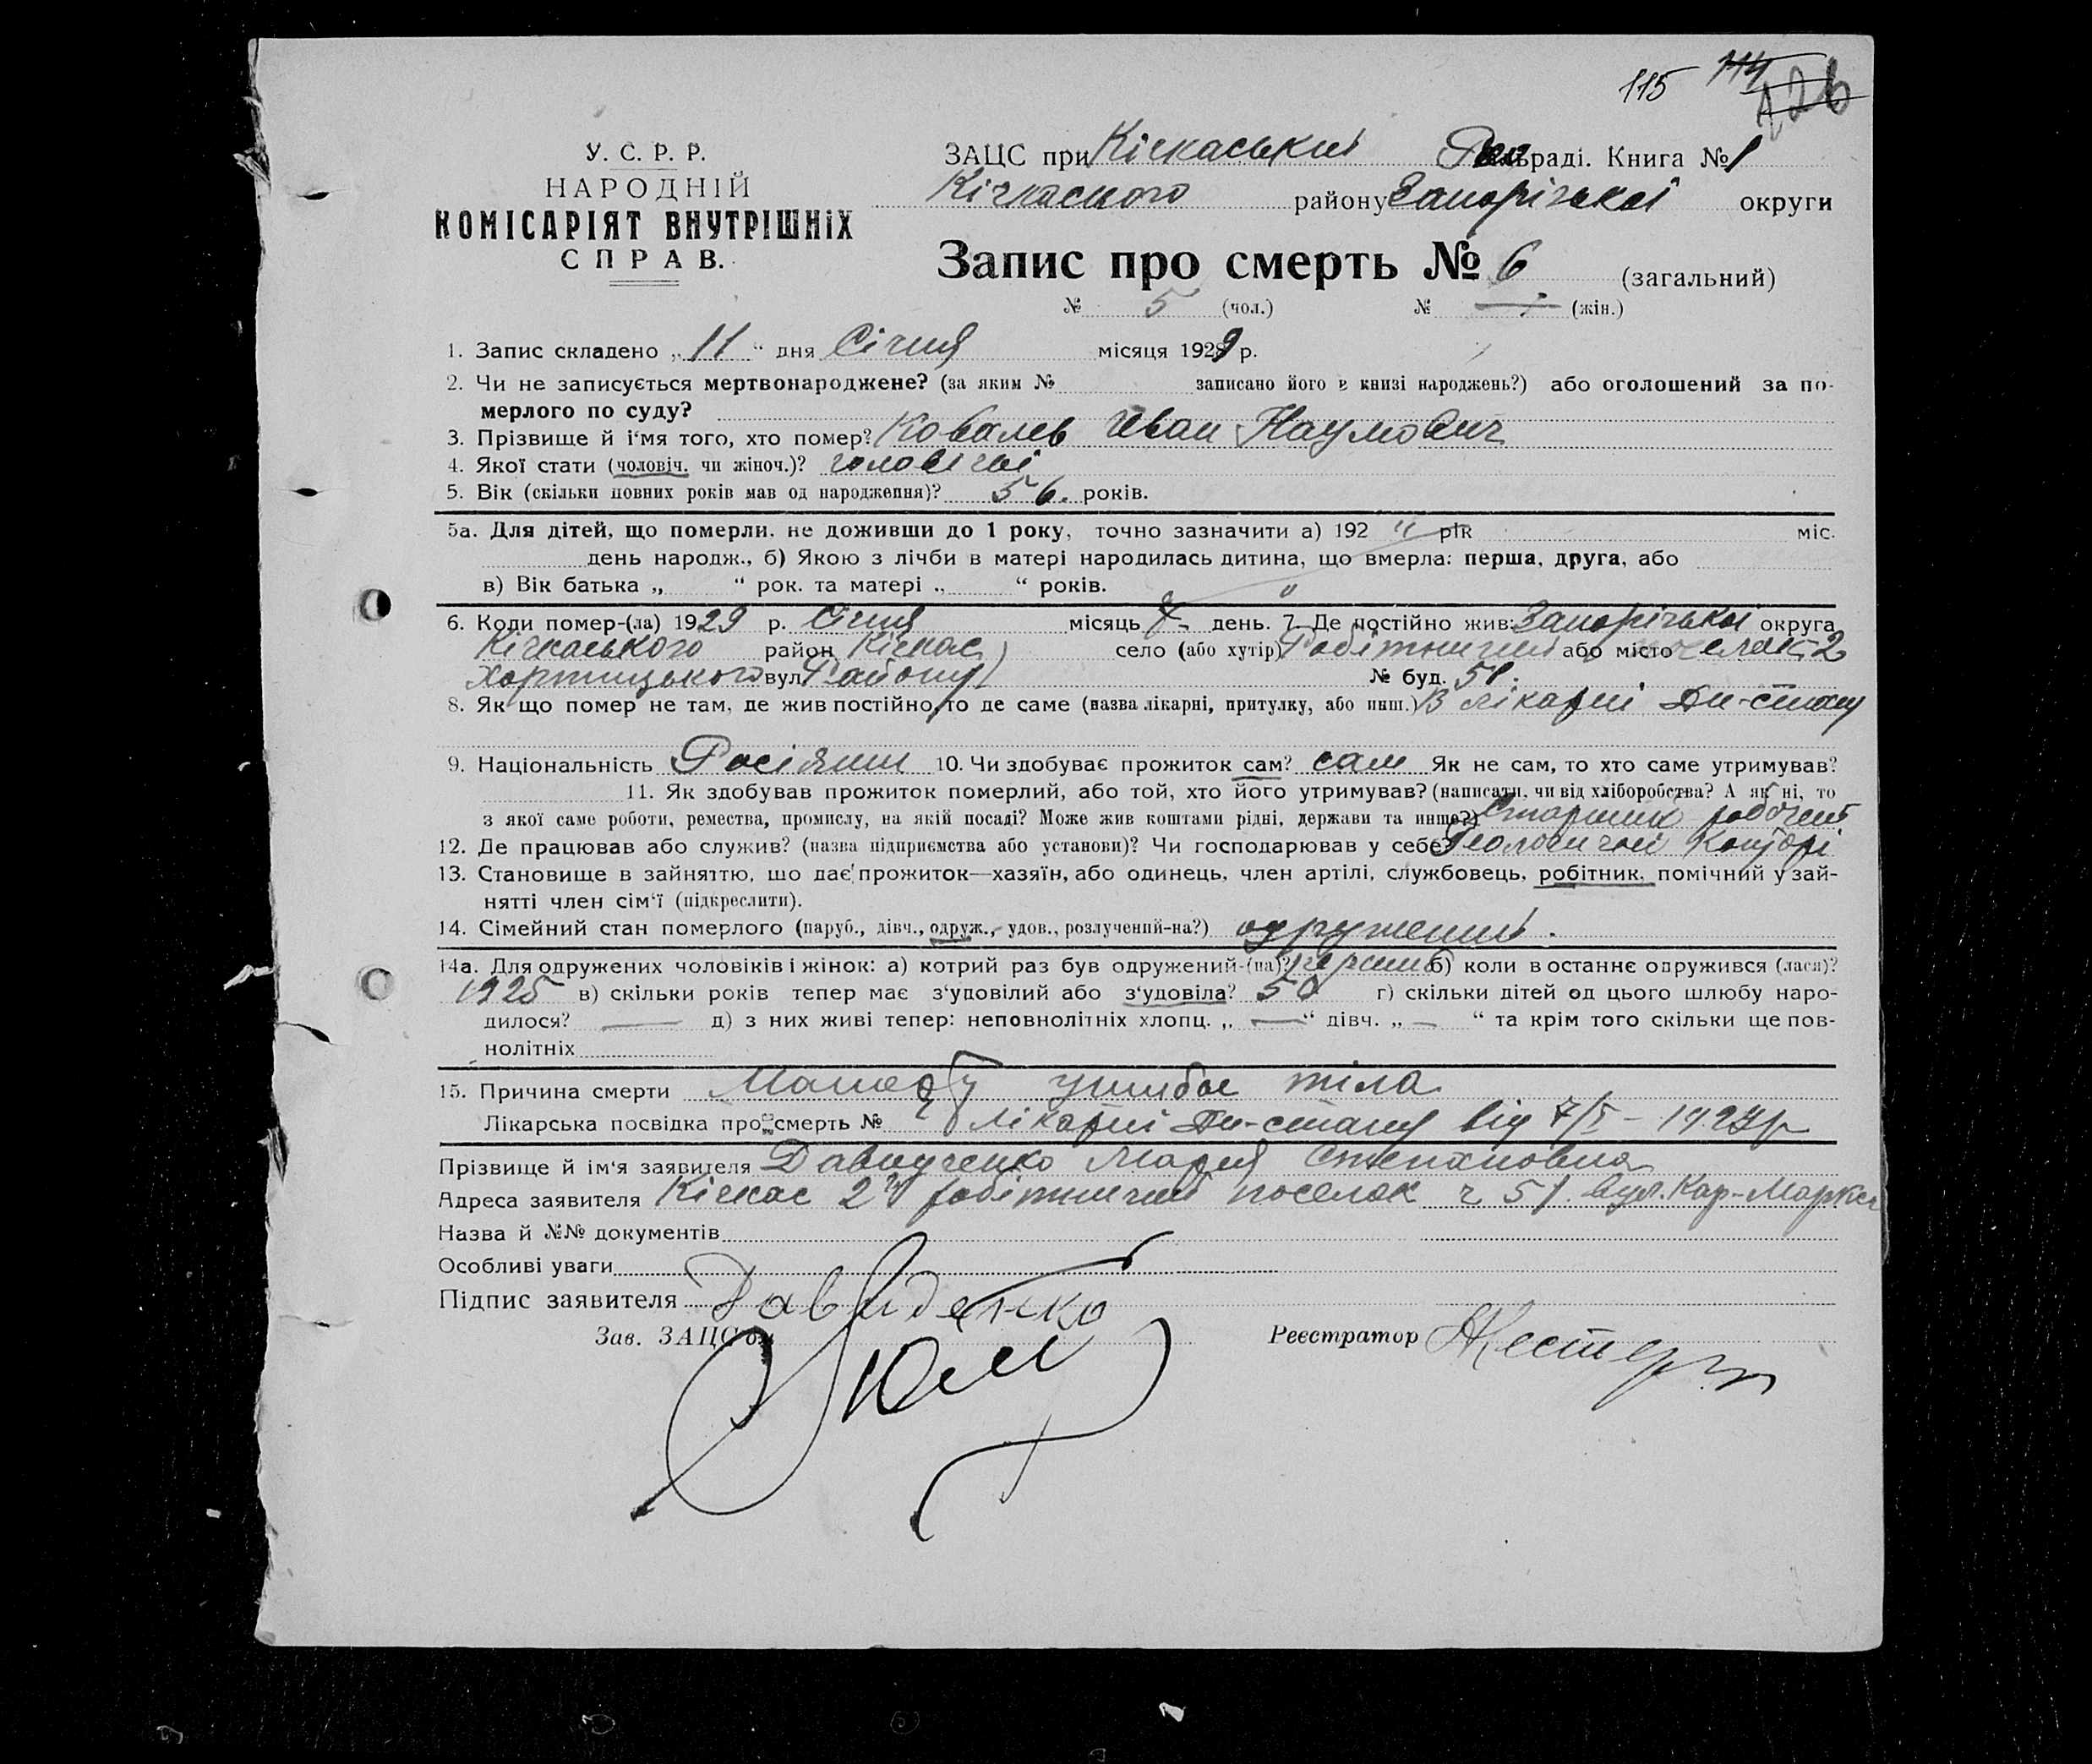 115 114 126
У. С. Р. Р.
НАРОДНІЙ
КОМІСАРІЯТ ВНУТРІШНІХ
СПРАВ.
ЗАЦС при Кічкаський Рай раді. Книга № 1
Кічкаського району Запорізької округи
Запис про смерть № 6 (загальний)
№ 5 (чол.) № — (жін.)
1. Запис складено „ 11 “ дня Січня місяця 1929 р.
2. Чи не записується мертвонароджене? (за яким № записано його в книзі народжень?) або оголошений за по-
мерлого по суду?
3. Прізвище й ім'я того, хто помер? Ковалев Иван Наумович
4. Якої стати (чоловіч. чи жіноч.)? чоловічої
5. Вік (скільки повних років мав од народження)? 56. років.
5а. Для дітей, що померли, не доживши до 1 року, точно зазначити а) 192 „ рік міс.
день народж., б) Якою з лічби в матері народилась дитина, що вмерла: перша, друга, або
в) Вік батька „ “ рок. та матері „ “ років. „
6. Коли помер-(ла) 1929 р. Січня місяць 7 день. 7. Де постійно жив: Запорізької округа
Кічкаського район Кічкас село (або хутір) Робітничий або місто селок 2
Хортицького вул. Району № буд. 51.
8. Як що помер не там, де жив постійно, то де саме (назва лікарні, притулку, або инш.) В лікарні Дн-стану
9. Національність Росіянин 10. Чи здобуває прожиток сам? сам Як не сам, то хто саме утримував?
11. Як здобував прожиток померлий, або той, хто його утримував? (написати, чи від хліборобства? А як ні, то
з якої саме роботи, ремества, промислу, на якій посаді? Може жив коштами рідні, держави та инше?) Старший робочий
12. Де працював або служив? (назва підприємства або установи)? Чи господарював у себе? Геологичой Конторі
13. Становище в зайняттю, що дає прожиток—хазяїн, або одинець, член артілі, службовець, робітник, помічний у зай-
нятті член сім'ї (підкреслити).
14. Сімейний стан померлого (паруб., дівч., одруж., удов., розлучений-на?) одружений.
14а. Для одружених чоловіків і жінок: а) котрий раз був одружений-(на)? перший б) коли востаннє одружився (лася)?
1925 в) скільки років тепер має з'удовілий або з'удовіла? 50 г) скільки дітей од цього шлюбу наро-
дилося? — д) з них живі тепер: неповнолітніх хлопц. „ — “ дівч. „ — “ та крім того скільки ще пов-
нолітніх
15. Причина смерти ушибы тіла
Лікарська посвідка про смерть № Лікарні Дн-стану від 7/I - 1929 р
Прізвище й ім'я заявителя Давидченко Мария Степановна
Адреса заявителя Кічкас 2й робітничий поселок ч 51. вул. Кар-Маркса
Назва й №№ документів
Особливі уваги
Підпис заявителя Давиденко
Зав. ЗАЦС'ом
Реєстратор